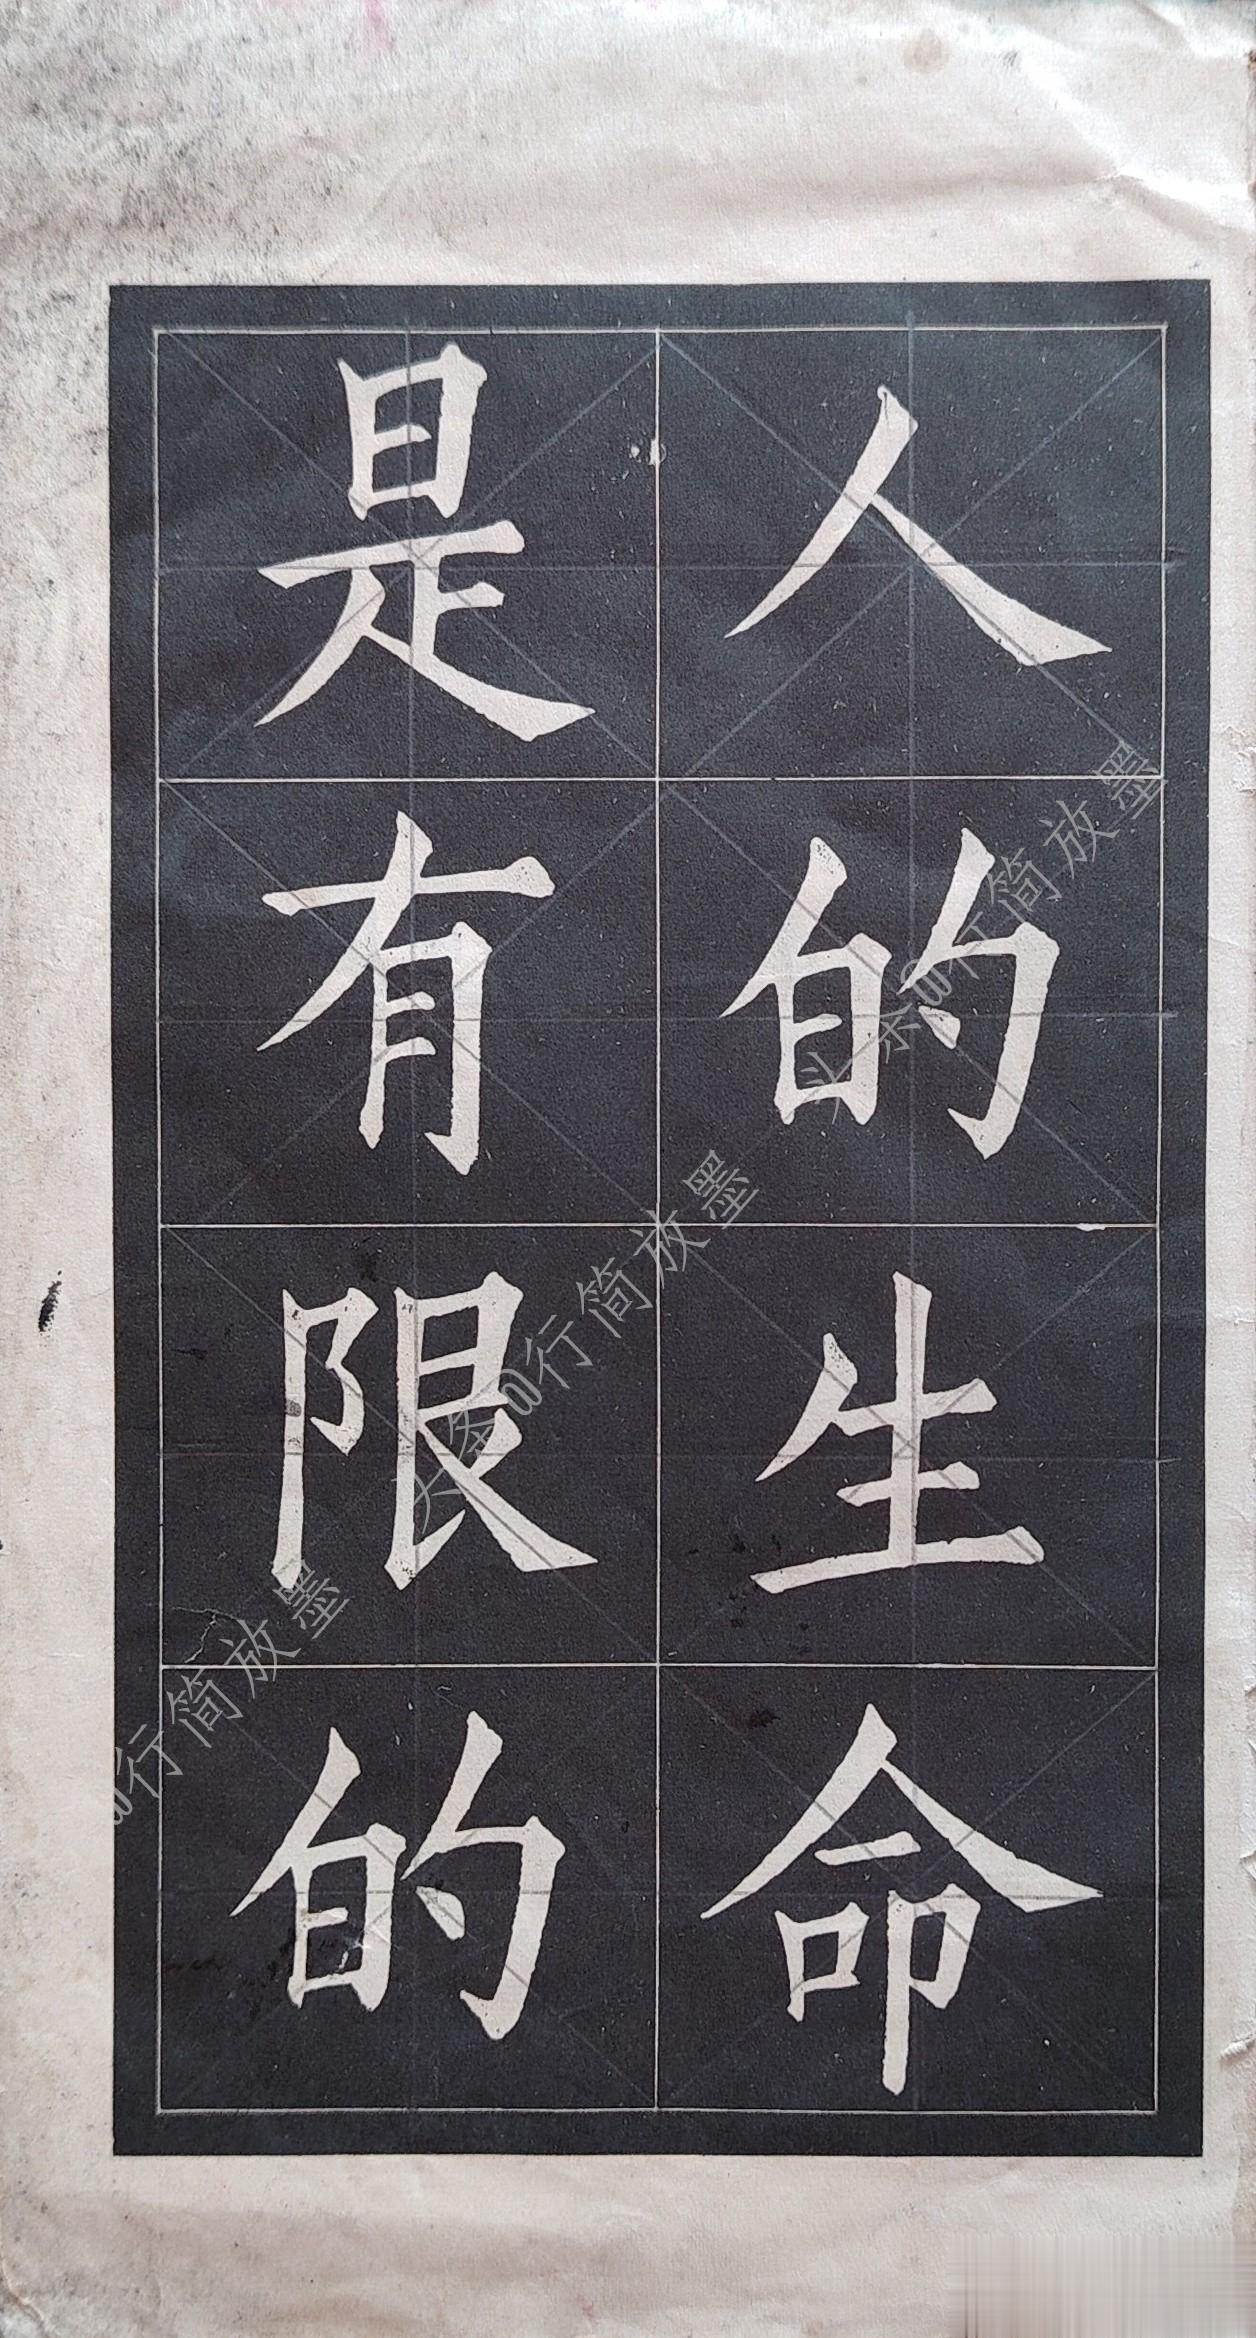 人的生命
是有限的
头条@行简放墨
头条@行简放墨
@行简放墨